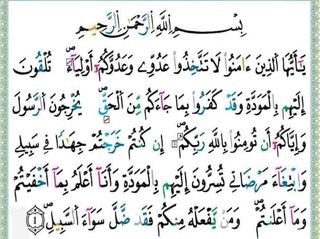 بِسْمِ ٱللَّهِ ٱلرَّحْمَٰنِ ٱلرَّحِيمِ
يَٰٓأَيُّهَا ٱلَّذِينَ ءَامَنُوا۟ لَا تَتَّخِذُوا۟ عَدُوِّى وَعَدُوَّكُمْ أَوْلِيَآءَ تُلْقُونَ
إِلَيْهِم بِٱلْمَوَدَّةِ وَقَدْ كَفَرُوا۟ بِمَا جَآءَكُم مِّنَ ٱلْحَقِّ يُخْرِجُونَ ٱلرَّسُولَ
وَإِيَّاكُمْ أَن تُؤْمِنُوا۟ بِٱللَّهِ رَبِّكُمْ إِن كُنتُمْ خَرَجْتُمْ جِهَٰدًا فِى سَبِيلِى
وَٱبْتِغَآءَ مَرْضَاتِى تُسِرُّونَ إِلَيْهِم بِٱلْمَوَدَّةِ وَأَنَا۠ أَعْلَمُ بِمَآ أَخْفَيْتُمْ
وَمَآ أَعْلَنتُمْ وَمَن يَفْعَلْهُ مِنكُمْ فَقَدْ ضَلَّ سَوَآءَ ٱلسَّبِيلِ ١